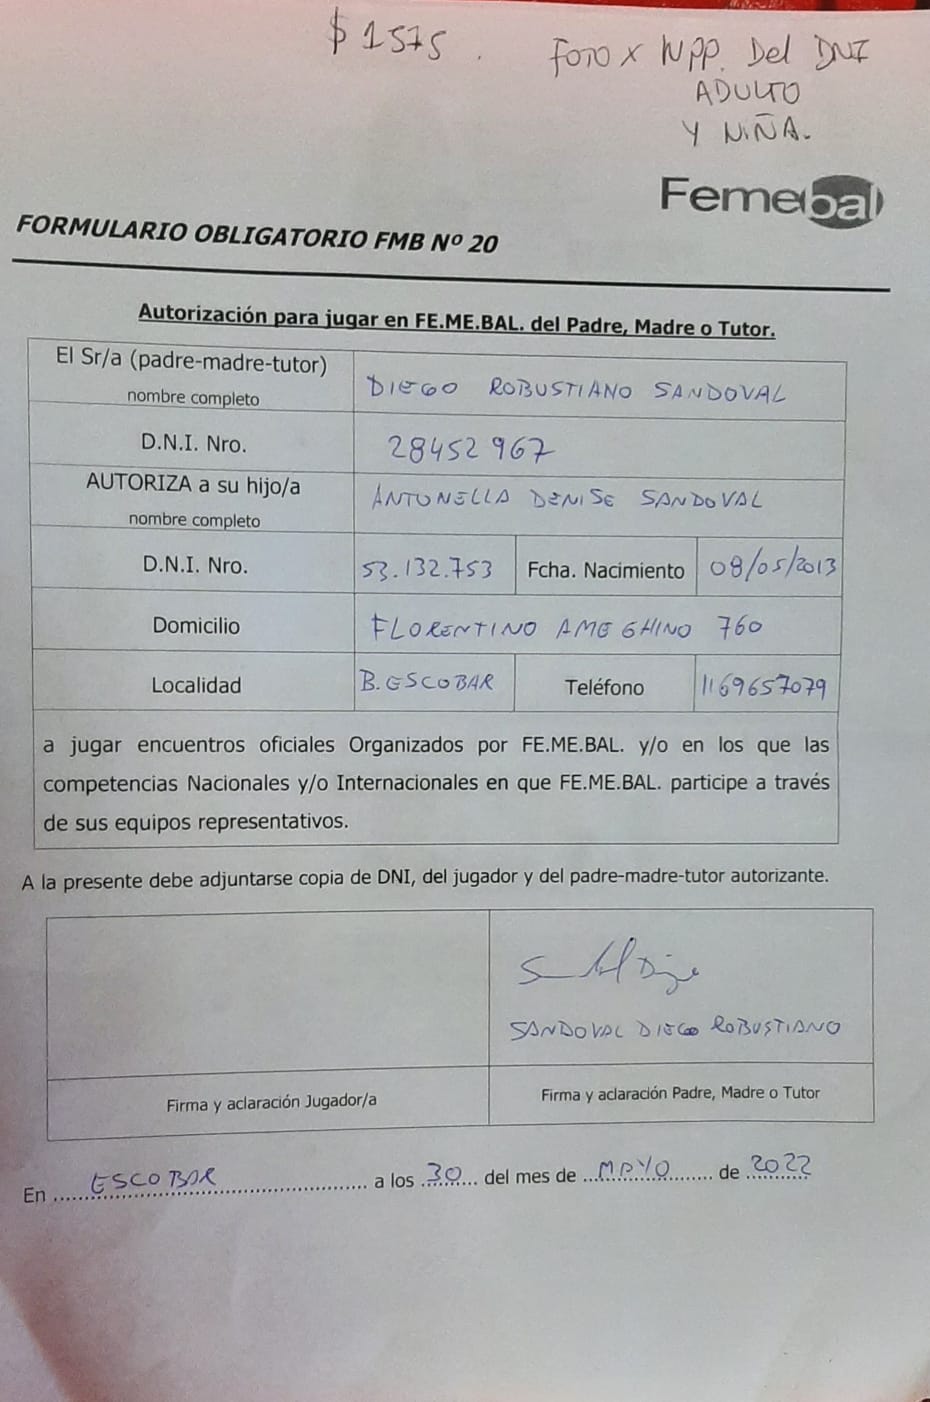 $ 1575.
FOTO X WPP. Del DNI
ADULTO
Y NIÑA.
Femebal
FORMULARIO OBLIGATORIO FMB Nº 20
Autorización para jugar en FE.ME.BAL. del Padre, Madre o Tutor.
El Sr/a (padre-madre-tutor)
nombre completo
DIEGO ROBUSTIANO SANDOVAL
D.N.I. Nro.
28452967
AUTORIZA a su hijo/a
nombre completo
ANTONELLA DENISE SANDOVAL
D.N.I. Nro.
53.132.753
Fcha. Nacimiento
08/05/2013
Domicilio
FLORENTINO AMEGHINO 760
Localidad
B. ESCOBAR
Teléfono
1169657079
a jugar encuentros oficiales Organizados por FE.ME.BAL. y/o en los que las
competencias Nacionales y/o Internacionales en que FE.ME.BAL. participe a través
de sus equipos representativos.
A la presente debe adjuntarse copia de DNI, del jugador y del padre-madre-tutor autorizante.
SANDOVAL DIEGO ROBUSTIANO
Firma y aclaración Jugador/a
Firma y aclaración Padre, Madre o Tutor
En ESCOBAR a los 30 del mes de MAYO de 2022